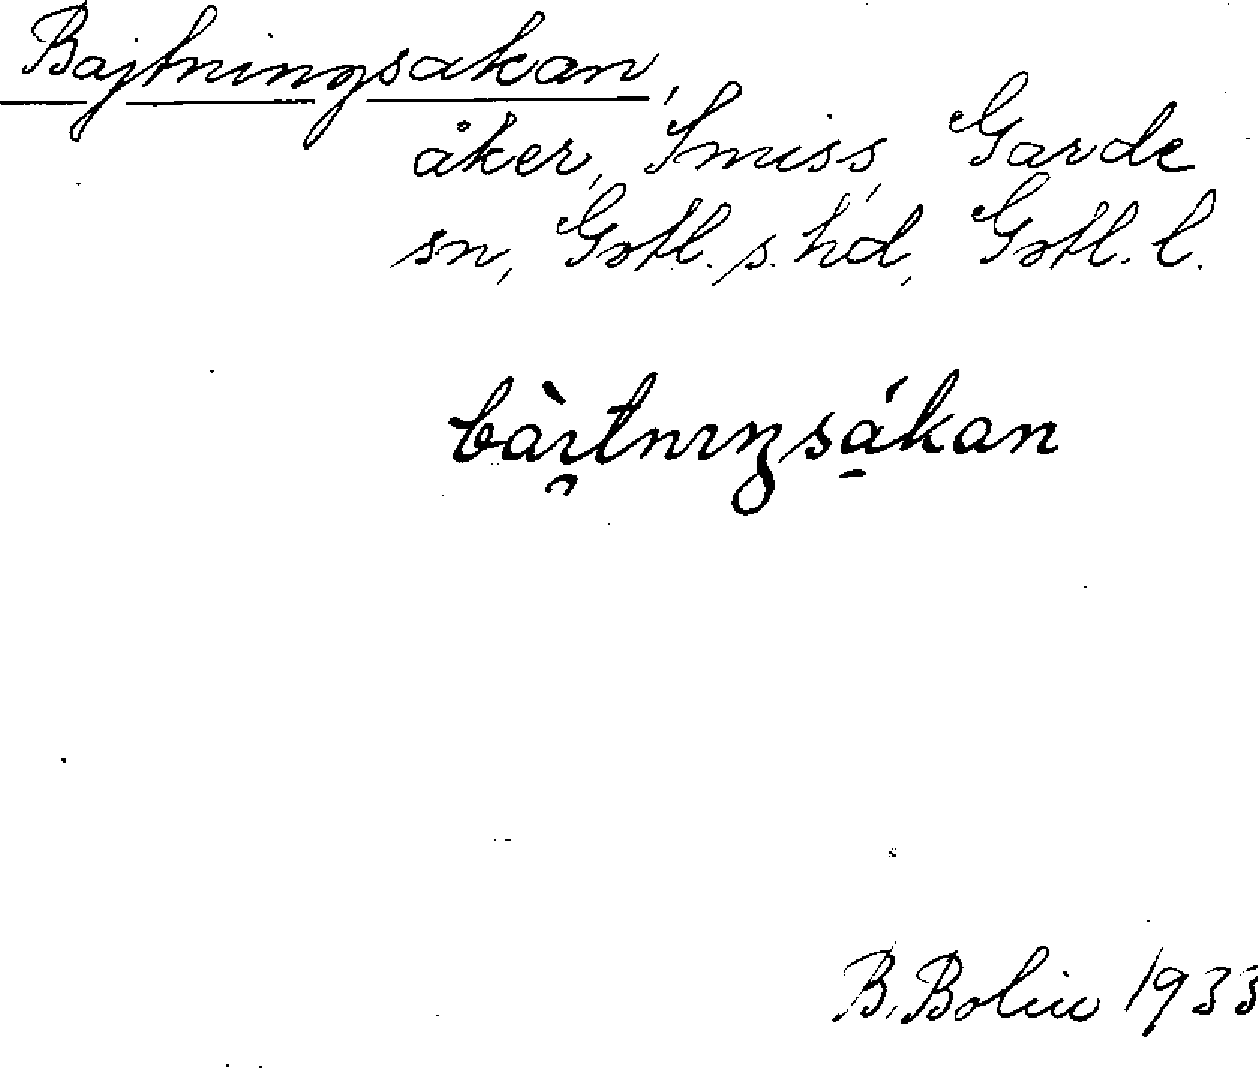 Bajtningsakan,
åker, Smiss, Garde
sn, Gotl. s. hd, Gotl. l.
bàı̯tnıŋsá̱kan
B. Bolin 1933